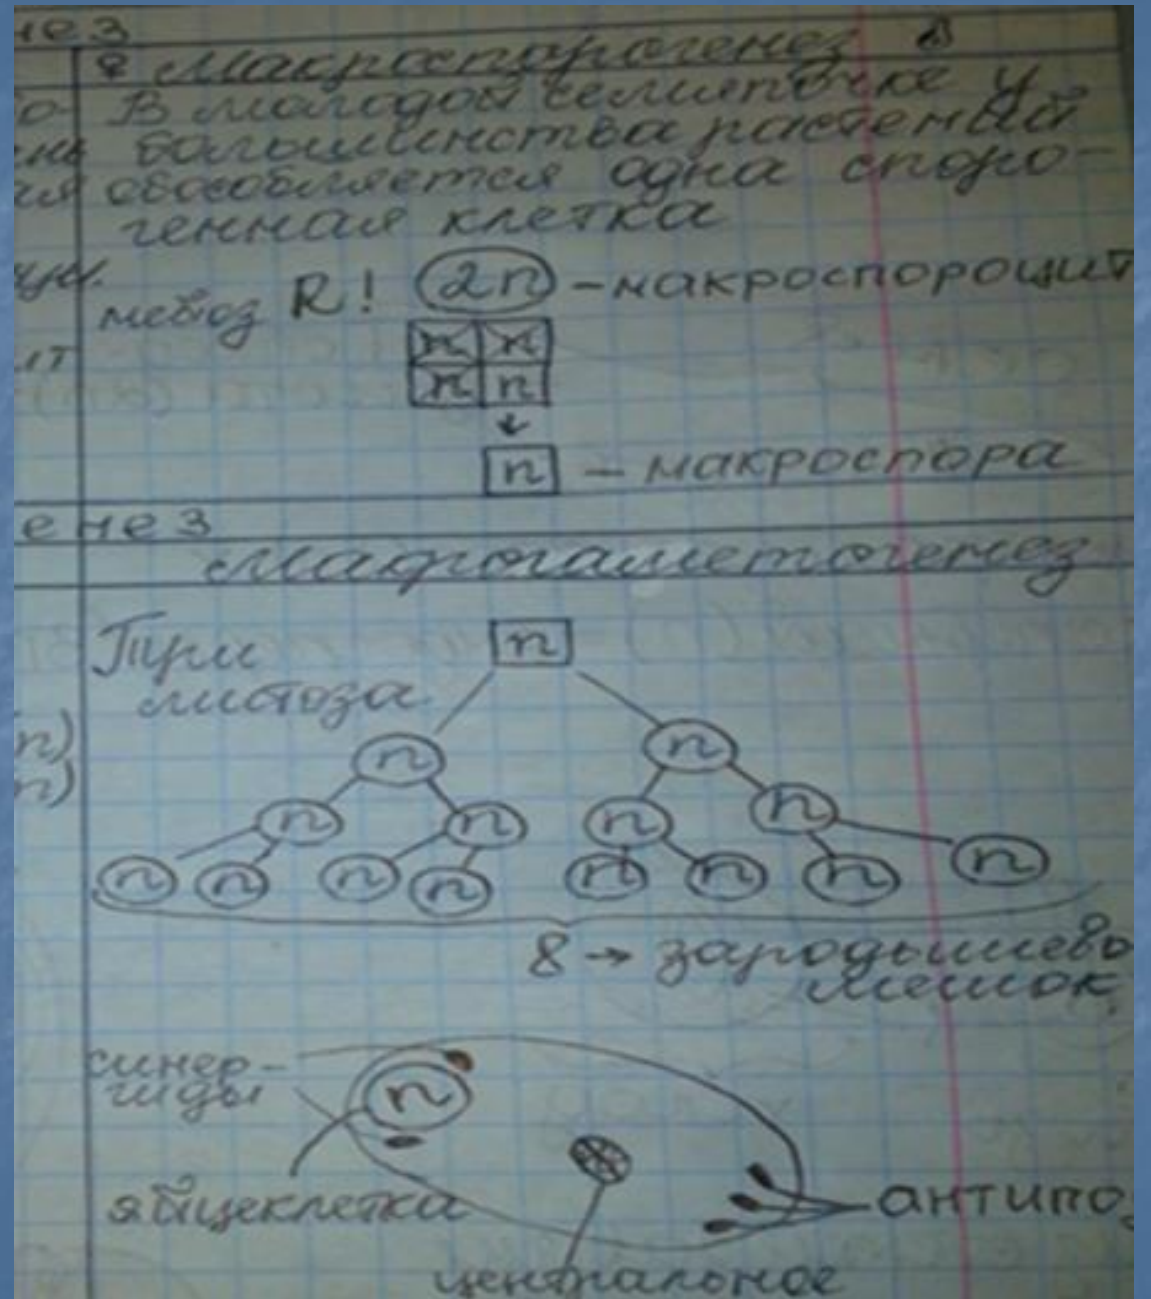 нез
♀ Макроспорогенез
В молодой семяпочке у
большинства растений
ая обособляется одна споро-
генная клетка
мейоз R! 2n - макроспороцит
n n
n n
n - макроспора
енез
Макрогаметогенез
n
Три
митоза
n n
n) n n n n
n) n n n n n n n n
8 → зародышево
мешок
синер-
гиды
n
яйцеклетка
антипо
центральное